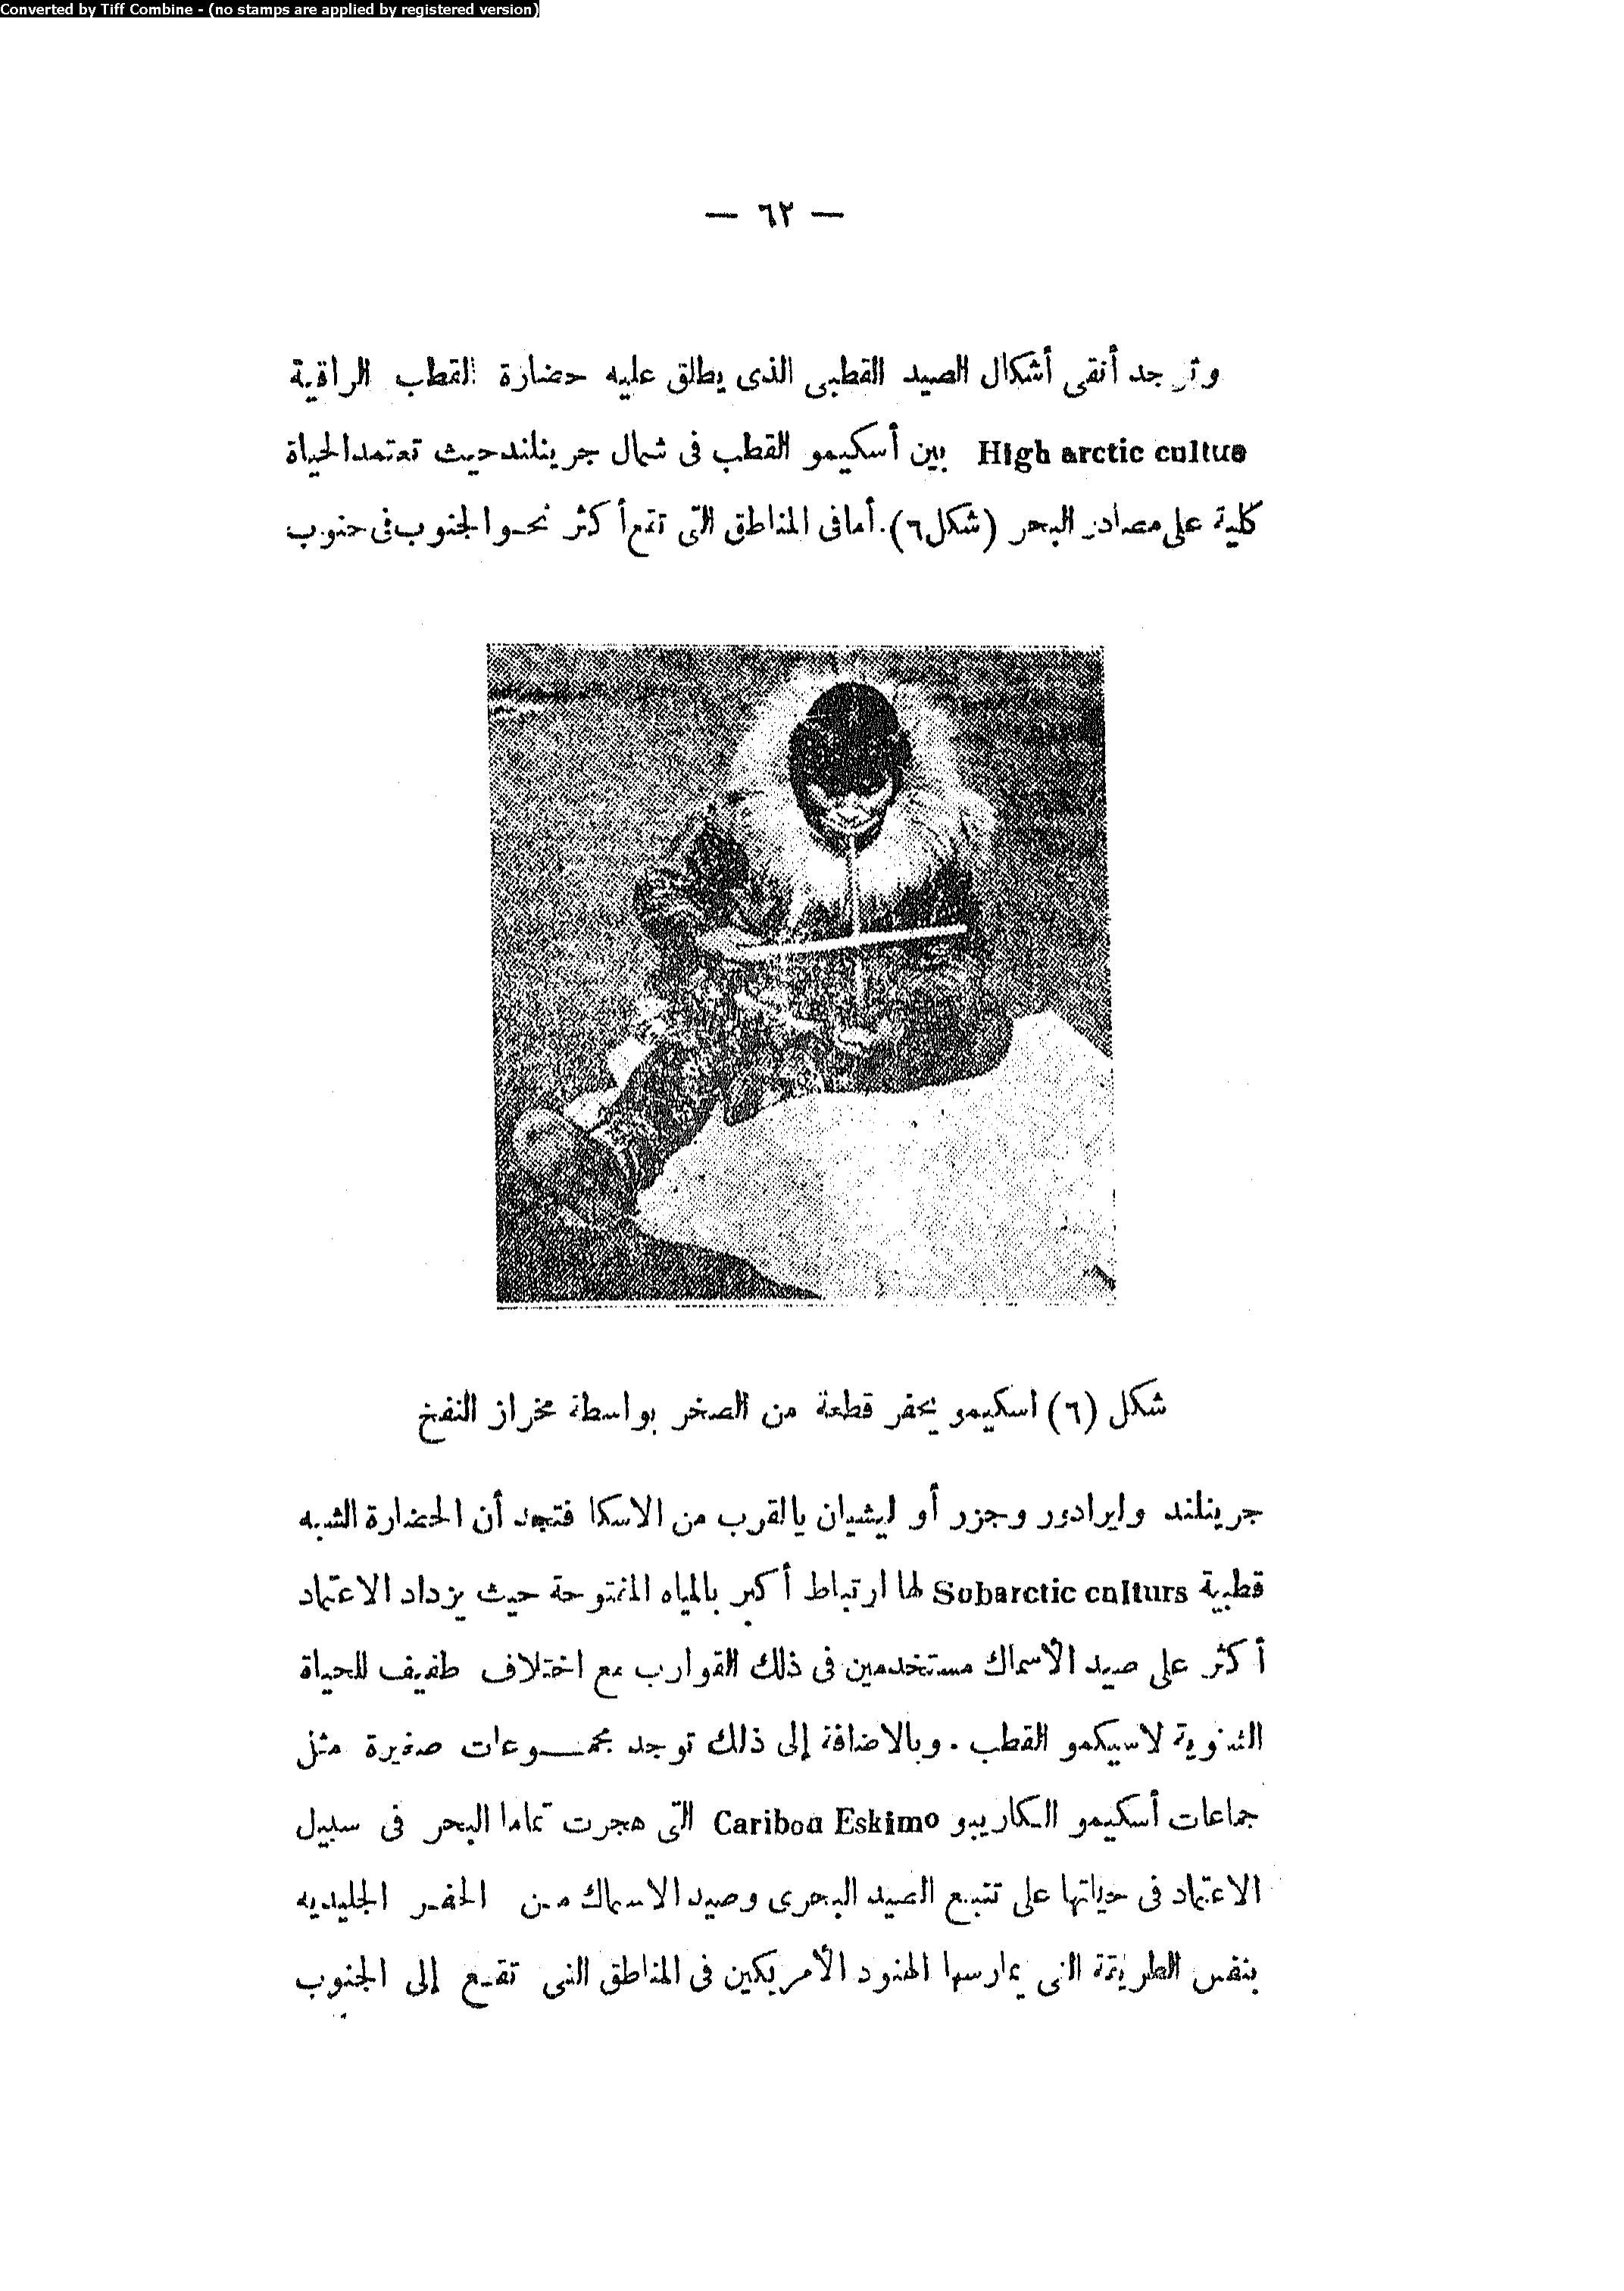 Converted by Tiff Combine - (no stamps are applied by registered version)
— ٦٢ —
وتوجد أنقى أشكال الصيد القطبى الذى يطلق عليه حضارة القطب الراقية
High arctic cultue بين أسكيمو القطب فى شمال جرينلند حيث تعتمد الحياة
كلية على مصادر البحر (شكل ٦). أما فى المناطق التى تقع أكثر نحو الجنوب فى جنوب
شكل (٦) اسكيمو يحفر قطعة من الصخر بواسطة مخراز النفخ
جرينلند ولبرادور وجزر أو ليشيان بالقرب من الاسكا فتجد أن الحضارة الشبه
قطبية Subarctic culturs لها ارتباط أكبر بالمياه المفتوحة حيث يزداد الاعتماد
أكثر على صيد الأسماك مستخدمين فى ذلك القوارب مع اختلاف طفيف للحياة
الشتوية لاسيكمو القطب . وبالاضافة إلى ذلك توجد مجموعات صغيرة مثل
جماعات أسكيمو الكاريبو Caribou Eskimo التى هجرت تماما البحر فى سبيل
الاعتماد فى حياتها على تتبع الصيد البحرى وصيد الاسماك من الحفر الجليديه
بنفس الطريقة التى يمارسها الهنود الأمريكين فى المناطق التى تقع إلى الجنوب